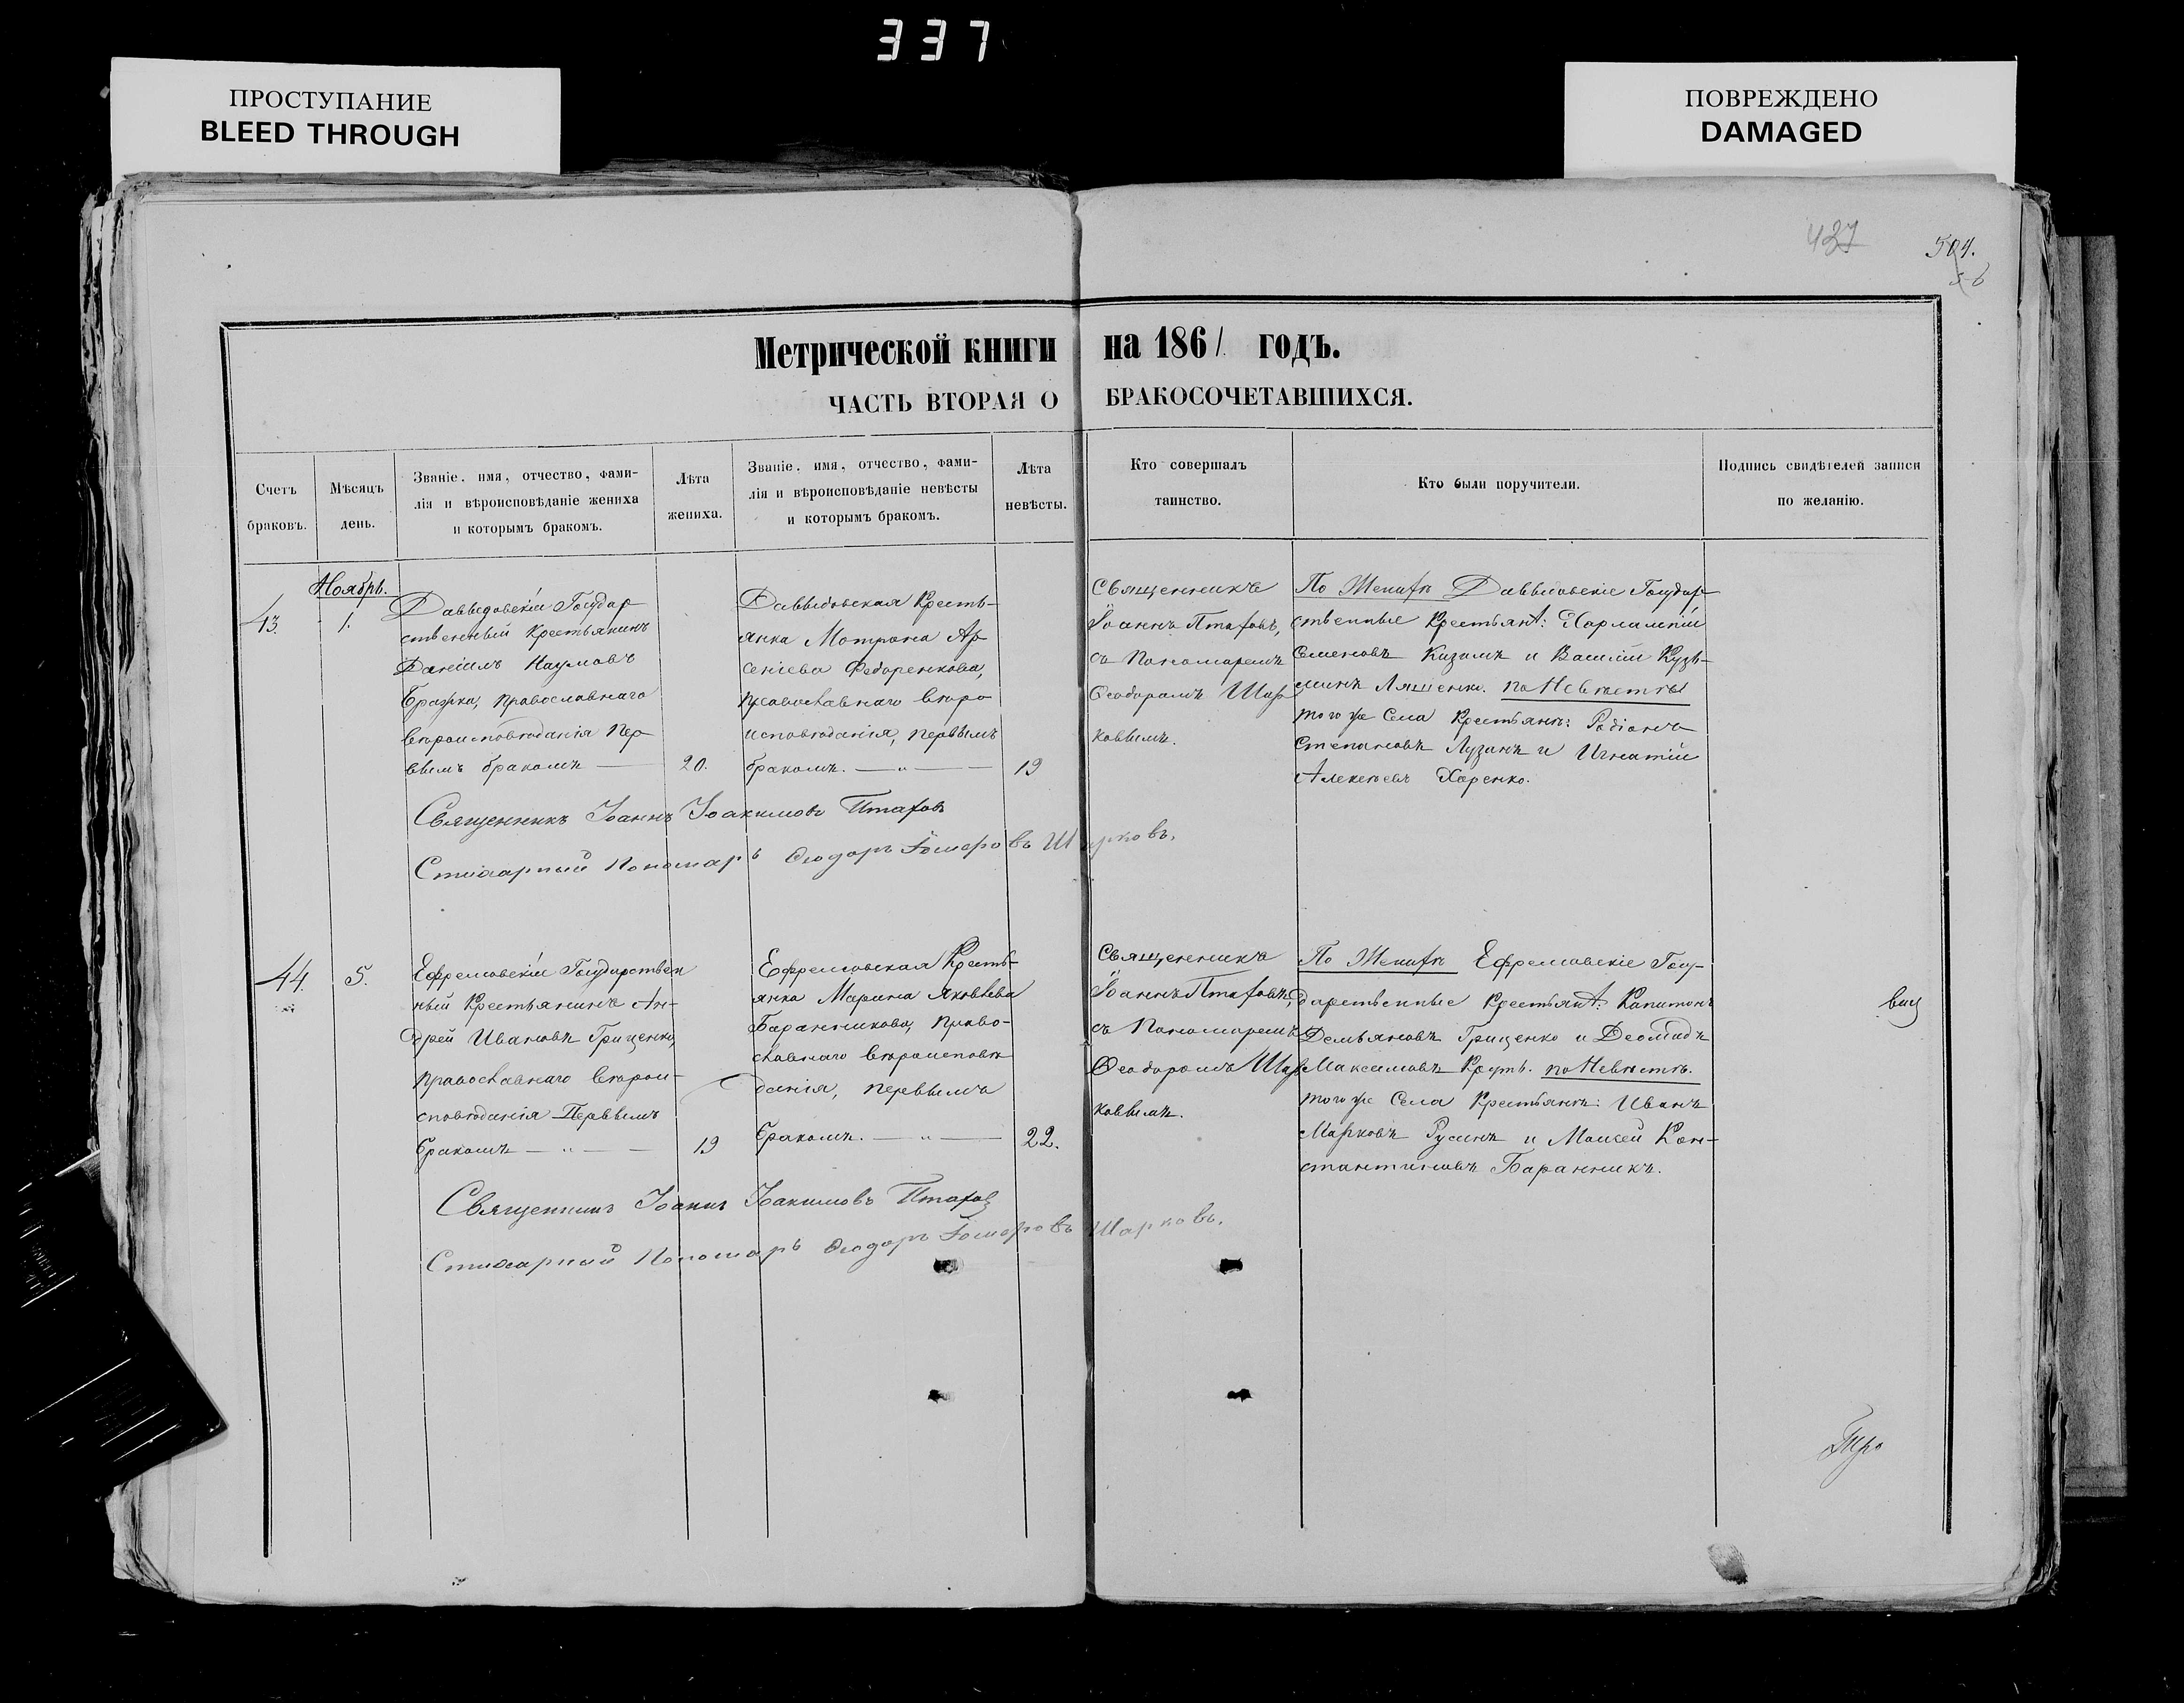 337
ПРОСТУПАНИЕ
BLEED THROUGH
ПОВРЕЖДЕНО
DAMAGED
437
504.
Метрической книги на 1861 годъ.
ЧАСТЬ ВТОРАЯ О БРАКОСОЧЕТАВШИХСЯ.
Счетъ
браковъ.
Мѣсяцъ
день.
Званіе, имя, отчество, фами-
лія и вѣроисповѣданіе жениха
и которымъ бракомъ.
Лѣта
жениха.
Званіе, имя, отчество, фами-
лія и вѣроисповѣданіе невѣсты
и которымъ бракомъ.
Лѣта
невѣсты.
Кто совершалъ
таинство.
Кто были поручители.
Подпись свидѣтелей записи
по желанію.
Ноябрь.
43.
1.
Даввыдовскій Государ
ственный Крестьянинъ
Даніилъ Наумовъ
Бражка, православнаго
вѣроисповѣданія пер
вымъ бракомъ
20.
Даввыдовская Кресть-
янка Мотрона Ар
сеніева Федоренкова,
православнаго вѣро
исповѣданія, первымъ
бракомъ.
19
Священникъ
Іоаннъ Птаховъ,
съ Пономаремъ
Ѳеодоромъ Шар
ковымъ.
По Женихѣ Даввыдовскіе Государ-
ственные Крестьян: Харлампій
Семеновъ Кизимъ и Василій Кузь-
минъ Ляшенко. по Невѣстѣ
того же Села Крестьяне: Родіонъ
Степановъ Лузанъ и Игнатій
Алексѣевъ Харенко.
Священникъ Іоаннъ Іоакимовъ Птаховъ
Стихарный Пономарь Ѳеодоръ Шарковъ.
44.
5.
Ефремовскій Государствен
ный Крестьянинъ Ан-
дрей Ивановъ Грищенко,
православнаго вѣрои-
сповѣданія Первымъ
бракомъ
19
Ефремовская Кресть-
янка Марина Яковлева
Баранникова, право-
славнаго вѣроисповѣ
данія, первымъ
бракомъ.
22.
Священникъ
Іоаннъ Птаховъ,
съ Пономаремъ
Ѳеодоромъ Шар
ковымъ.
По Женихѣ Ефремовскіе Госу-
дарственные Крестьян: Капитонъ
Демьяновъ Грищенко и Деомидъ
Максимовъ Круть. по Невѣстѣ.
того же Села Крестьяне: Иванъ
Марковъ Русинъ и Моисей Кон-
стантиновъ Баранникъ.
Священникъ Іоаннъ Іоакимовъ Птаховъ
Стихарный Пономарь Ѳеодоръ Шарковъ.